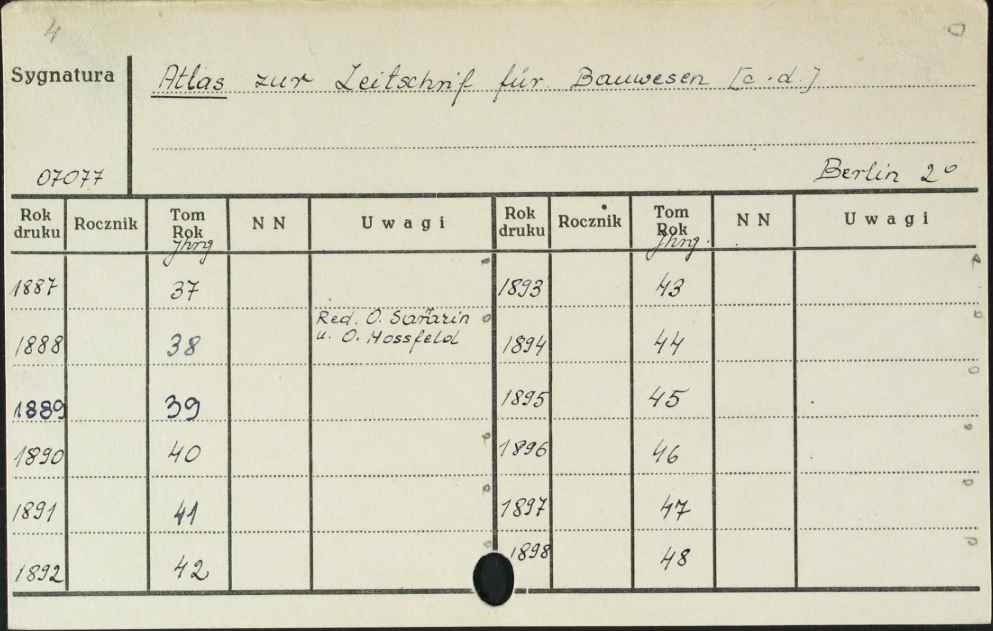 4
Sygnatura
Atlas zur Zeitschrif für Bauwesen [c.d.]
07077
Berlin 2°
Rok druku Rocznik Tom Rok NN Uwagi Rok druku Rocznik Tom Rok NN Uwagi
Jhrg Jhrg.
1887 37 1893 43
1888 38 Red. O. Sarrazin u. O. Hossfeld 1894 44
1889 39 1895 45
1890 40 1896 46
1891 41 1897 47
1892 42 1898 48